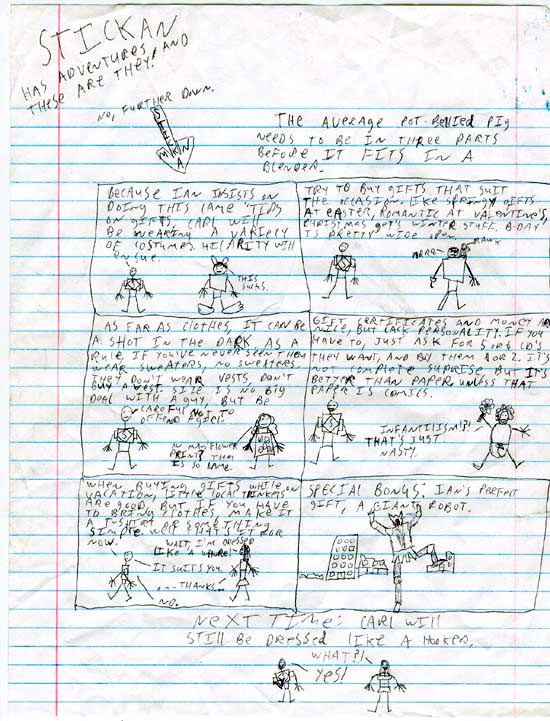 STICKAN
HAS ADVENTURES, AND
THESE ARE THEY!
NO, FURTHER DOWN.
THE AVERAGE POT-BELLIED PIG
NEEDS TO BE IN THREE PARTS
BEFORE IT FITS IN A
BLENDER.
BECAUSE IAN INSISTS ON
DOING THIS LAME "TIPS
ON GIFTS, CARL WILL
BE WEARING A VARIETY
OF COSTUMES. HILARITY WILL
ENSUE.
THIS
SUCKS.
TRY TO BUY GIFTS THAT SUIT
THE OCCASION. LIKE SPRINGY GIFTS
AT EASTER, ROMANTIC AT VALENTINE'S,
CHRISTMAS GETS WINTER STUFF. B-DAY
IS PRETTY WIDE OPEN
ARRR
RAWK
AS FAR AS CLOTHES, IT CAN BE
A SHOT IN THE DARK. AS A
RULE, IF YOU'VE NEVER SEEN THEM
WEAR SWEATERS, NO SWEATERS.
THEY DON'T WEAR VESTS, DON'T
BUY A VEST. SIZE IS NO BIG
DEAL WITH A GUY, BUT BE
CAREFUL NOT TO
OFFEND A GIRL.
PRINT? THAT
IS SO LAME.
GIFT CERTIFICATES AND MONEY ARE
NICE, BUT LACK PERSONALITY. IF YOU
HAVE TO, JUST ASK FOR 5 OR 6 CD'S
THEY WANT, AND BUY THEM 1 OR 2. IT'S
NOT COMPLETE SUPRISE BUT IT'S
BETTER THAN PAPER, UNLESS THAT
PAPER IS COMICS.
INFANTILISM?!?
THAT'S JUST
NASTY.
WHEN BUYING GIFTS WHILE ON
VACATION, LITTLE LOCAL TRINKETS
ARE GOOD, BUT IF YOU HAVE
TO BRING CLOTHES, MAKE IT
A T-SHIRT OR SOMETHING
SIMPLE. WELL, THAT'S IT FOR
NOW.
WAIT, I'M DRESSED
LIKE A WHORE!
IT SUITS YOU
...THANKS...
NO.
SPECIAL BONUS: IAN'S PERFECT
GIFT, A GIANT ROBOT.
NEXT TIME: CARL WILL
STILL BE DRESSED LIKE A HOOKER.
WHAT?!
YES!